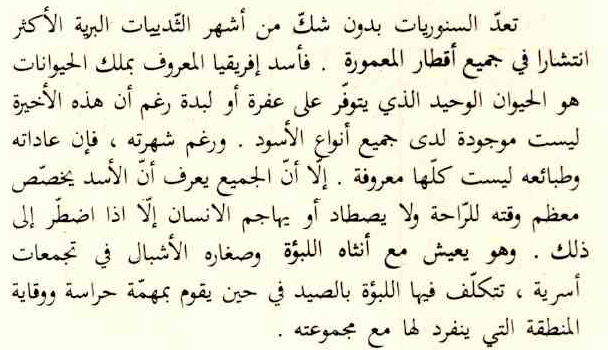 تعدّ السنوريات بدون شكّ من أشهر الثّدييات البرية الأكثر
انتشارا في جميع أقطار المعمورة . فأسد إفريقيا المعروف بملك الحيوانات
هو الحيوان الوحيد الذي يتوفّر على عفرة أو لبدة رغم أن هذه الأخيرة
ليست موجودة لدى جميع أنواع الأسود . ورغم شهرته ، فإن عاداته
وطبائعه ليست كلّها معروفة . إلّا أنّ الجميع يعرف أنّ الأسد يخصّص
معظم وقته للرّاحة ولا يصطاد أو يهاجم الانسان إلّا اذا اضطّر إلى
ذلك . وهو يعيش مع أنثاه اللبؤة وصغاره الأشبال في تجمعات
أسرية ، تتكلّف فيها اللبؤة بالصيد في حين يقوم بمهمّة حراسة ووقاية
المنطقة التي ينفرد لها مع مجموعته .